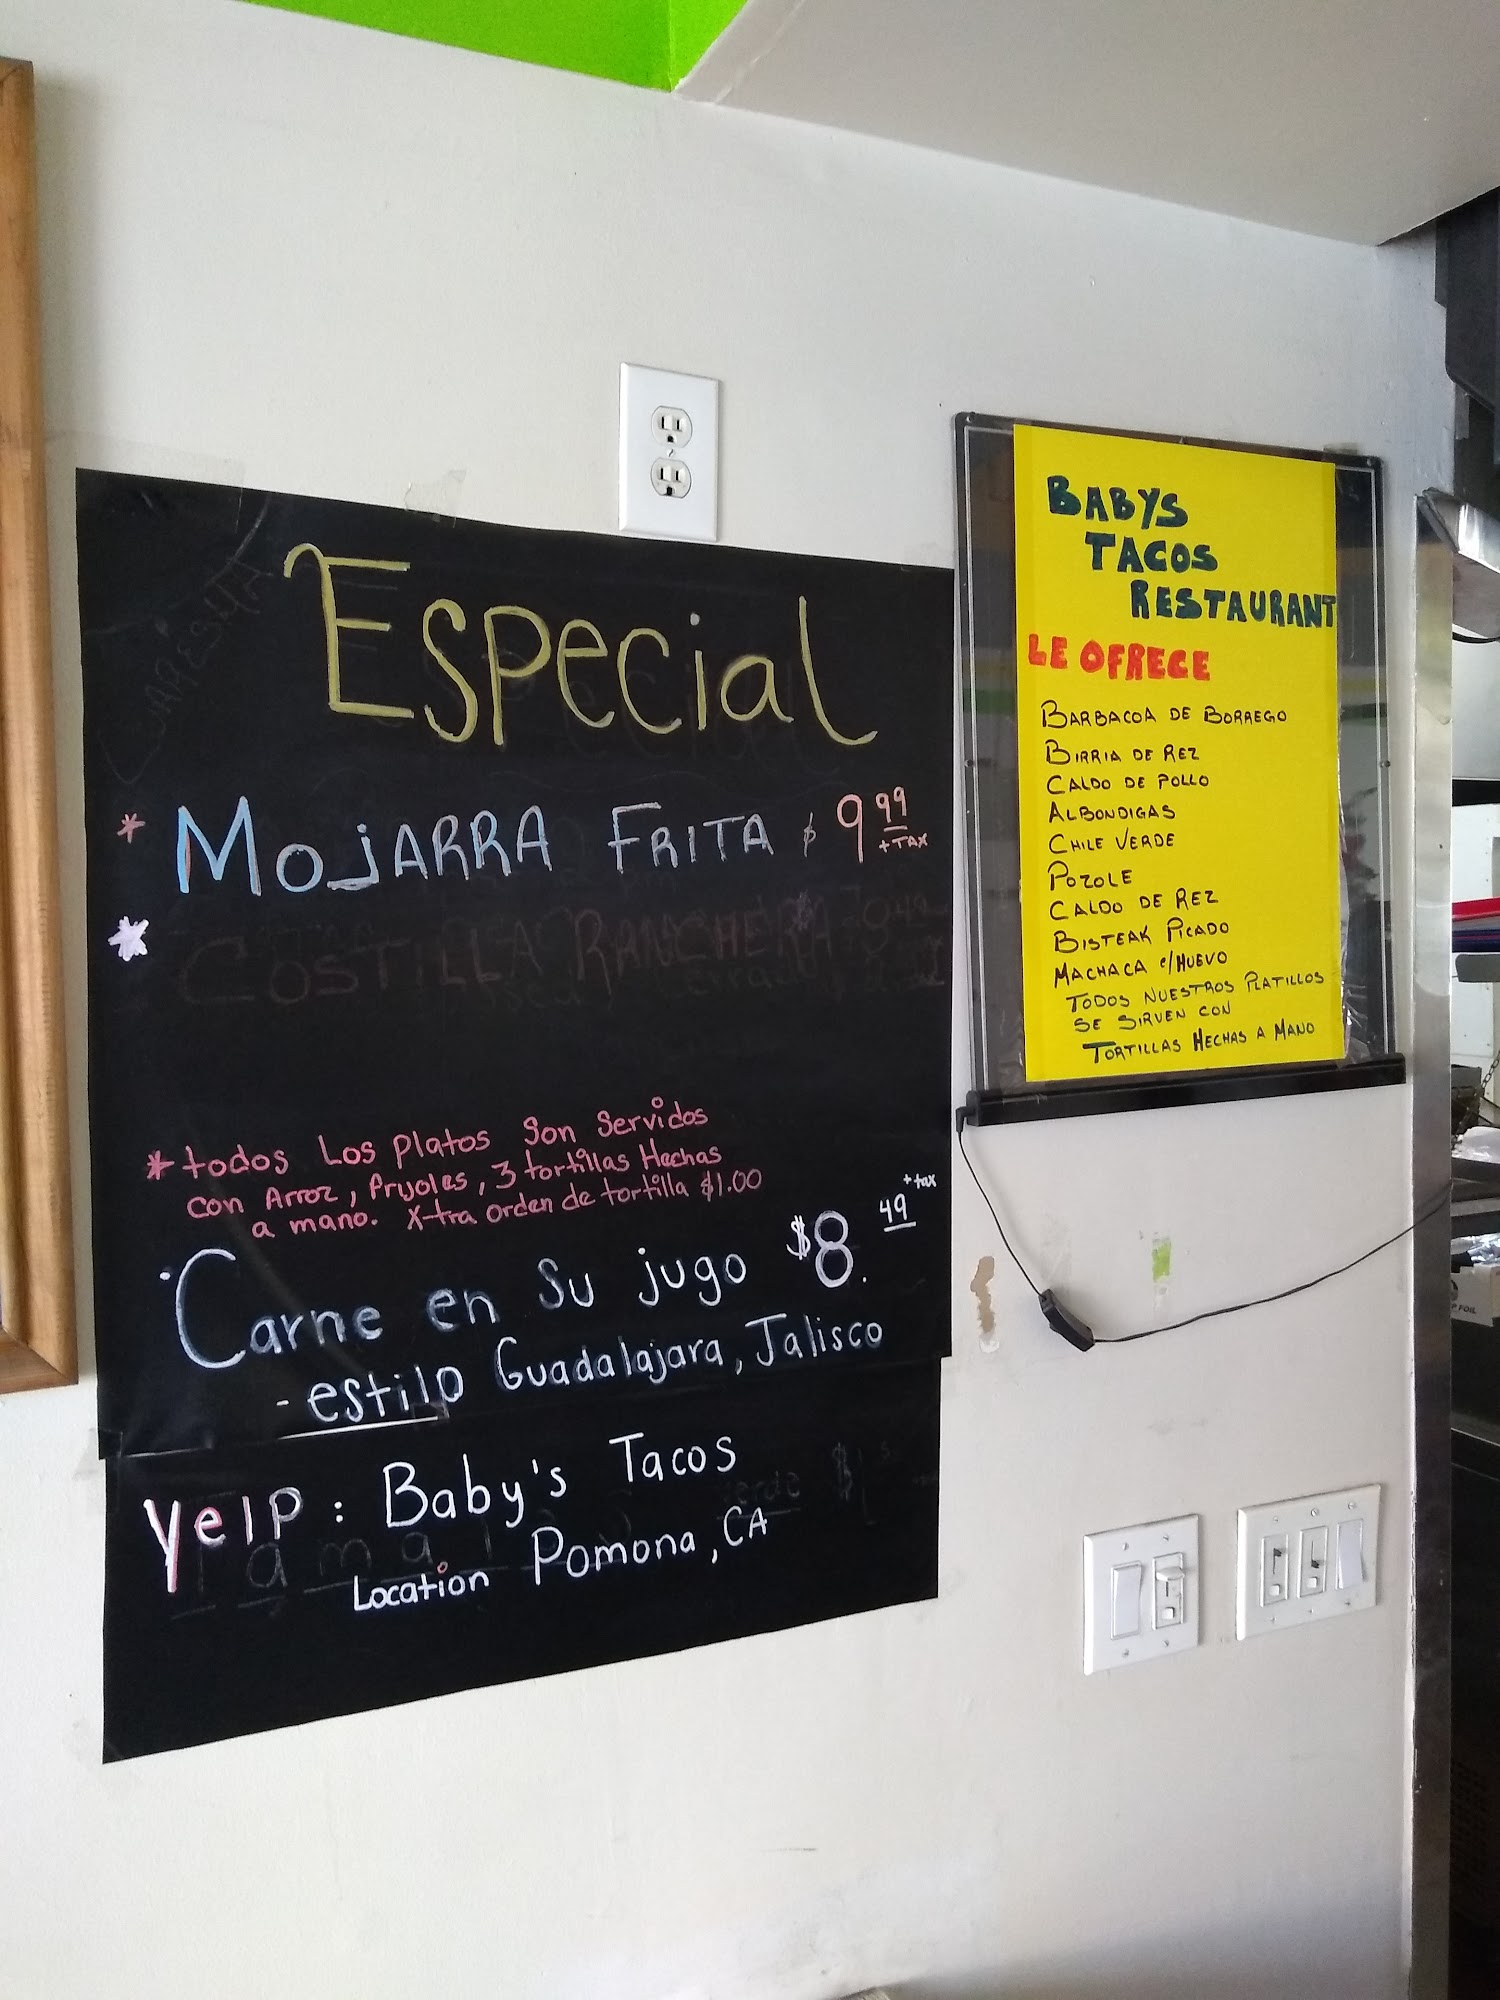 Especial
* Mojarra Frita $ 9.99 + TAX
*
Costilla Ranchera
* todos Los platos son servidos
con Arroz, frijoles, 3 tortillas Hechas
a mano. X-tra orden de tortilla $1.00
Carne en su jugo $8.49 + tax
- estilo Guadalajara, Jalisco
Yelp: Baby's Tacos
Location Pomona, CA
BABYS
TACOS
RESTAURANT
LE OFRECE
BARBACOA DE BORREGO
BIRRIA DE REZ
CALDO DE POLLO
ALBONDIGAS
CHILE VERDE
POZOLE
CALDO DE REZ
BISTEAK PICADO
MACHACA c/HUEVO
TODOS NUESTROS PLATILLOS
SE SIRVEN CON
TORTILLAS HECHAS A MANO
FOIL